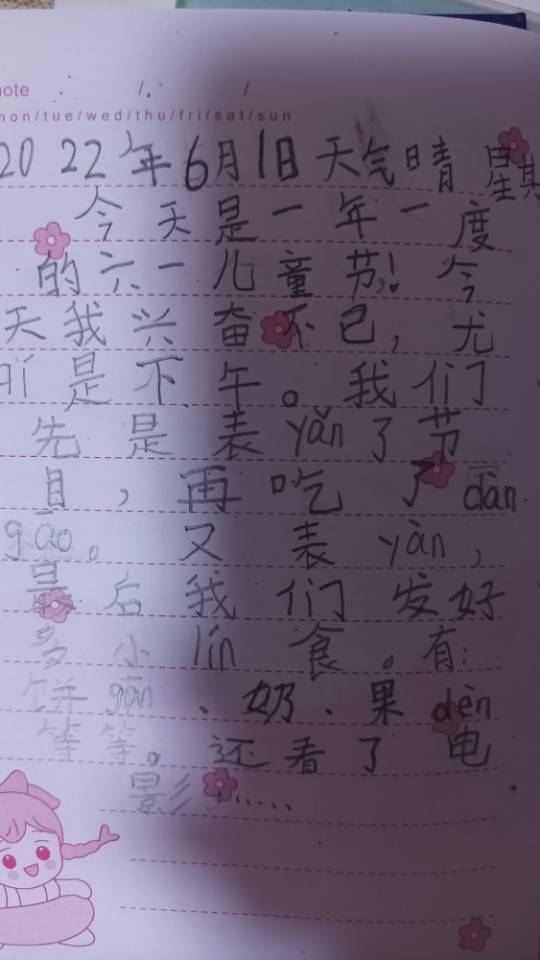 note / /
mon/tue/wed/thu/fri/sat/sun
2022年6月1日天气晴 星期
今天是一年一度
的六一儿童节!今
天我兴奋不已,尤
是下午。我们
先是表yǎn了节
目,再吃了dàn
gāo。又表yàn,
最后我们发好
多小lín食。有:
饼gān、奶、果dèn
等等。还看了电
影……